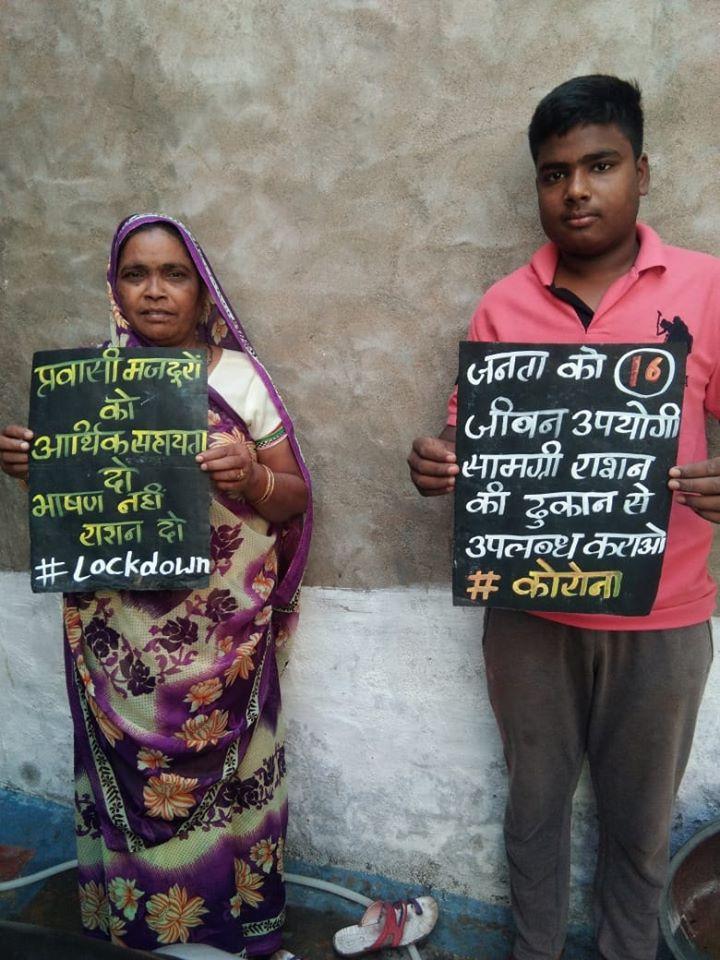 प्रवासी मजदूरों
को
आर्थिक सहायता
दो
भाषण नहीं
राशन दो
# Lockdown
जनता को 16
जीवन उपयोगी
सामग्री राशन
की दुकान से
उपलब्ध कराओ
# कोरोना